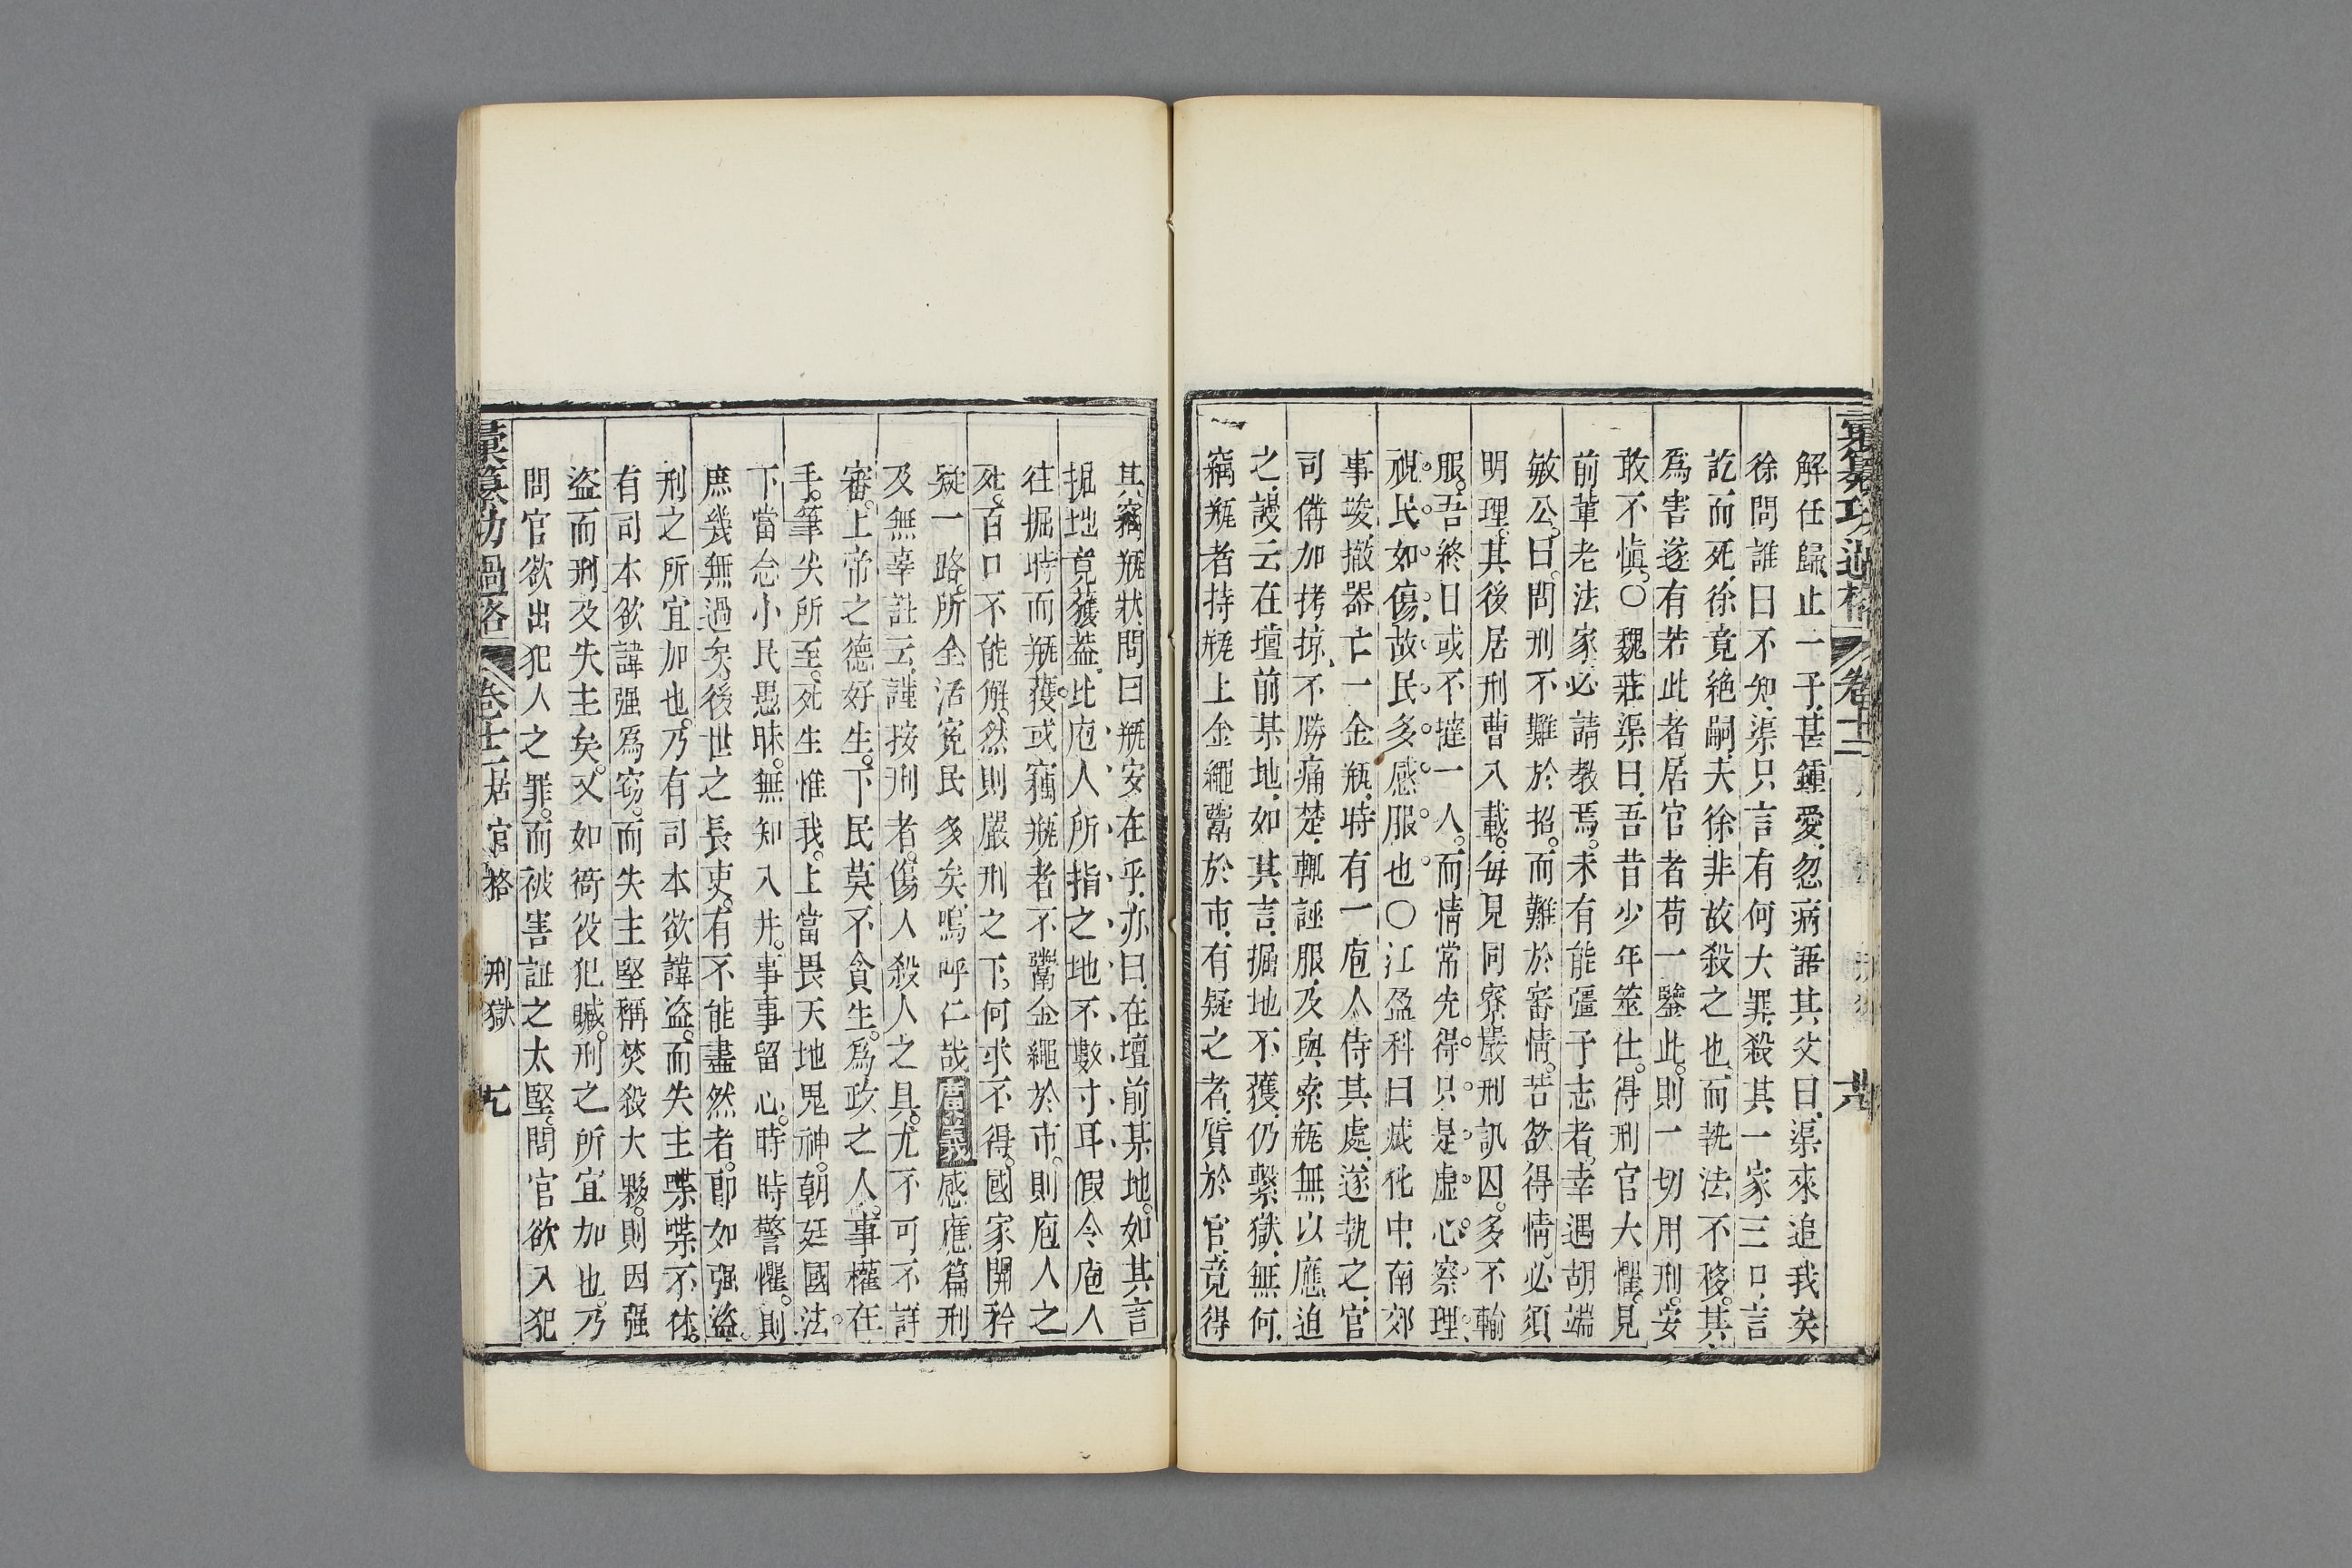 彙纂功過格 卷十二 刑獄 六
解任歸止一子甚鍾愛忽病語其父曰渠來追我矣
徐問誰曰不知渠只言有何大罪殺其一家三口言
訖而死徐竟絶嗣夫徐非故殺之也而執法不移其
爲害遂有若此者居官者苟一鑒此則一切用刑安
敢不慎○魏莊渠曰吾昔少年筮仕得刑官大懼見
前輩老法家必請教焉未有能彊予志者幸遇胡端
敏公曰問刑不難於招而難於審情苦欲得情必須
明理其後居刑曹八載每見同寮嚴刑訊囚多不輸
服吾終日或不撻一人而情常先得只是虛心察理
視民如傷故民多感服也○江盈科曰咸化中南郊
事竣撤器亡一金瓶時有一庖人侍其處遂執之官
司備加拷掠不勝痛楚輒誣服及與索瓶無以應迫
之謾云在壇前某地如其言掘地不獲仍繫獄無何
竊瓶者持瓶上金繩鬻於市有疑之者質於官竟得
其竊瓶狀問曰瓶安在乎亦曰在壇前某地如其言
掘地竟獲蓋比庖人所指之地不數寸耳假令庖人
往掘時而瓶獲或竊瓶者不鬻金繩於市則庖人之
死百口不能解然則嚴刑之下何求不得國家開矜
疑一路所全活寃民多矣嗚呼仁哉廣義感應篇刑
及無辜註云謹按刑者傷人殺人之具尤不可不詳
審上帝之德好生下民莫不貪生爲政之人事權在
手筆尖所至死生惟我上當畏天地鬼神朝廷國法
下當念小民愚昧無知入井事事留心時時警懼則
庶幾無過矣後世之長吏有不能盡然者卽如强盜
刑之所宜加也乃有司本欲諱盜而失主喋喋不休
有司本欲諱强爲窃而失主堅稱焚殺大夥則因强
盜而刑及失主矣又如衙役犯贓刑之所宜加也乃
問官欲出犯人之罪而被害証之太堅問官欲入犯
彙纂功過格 卷十二 居官格 刑獄  九